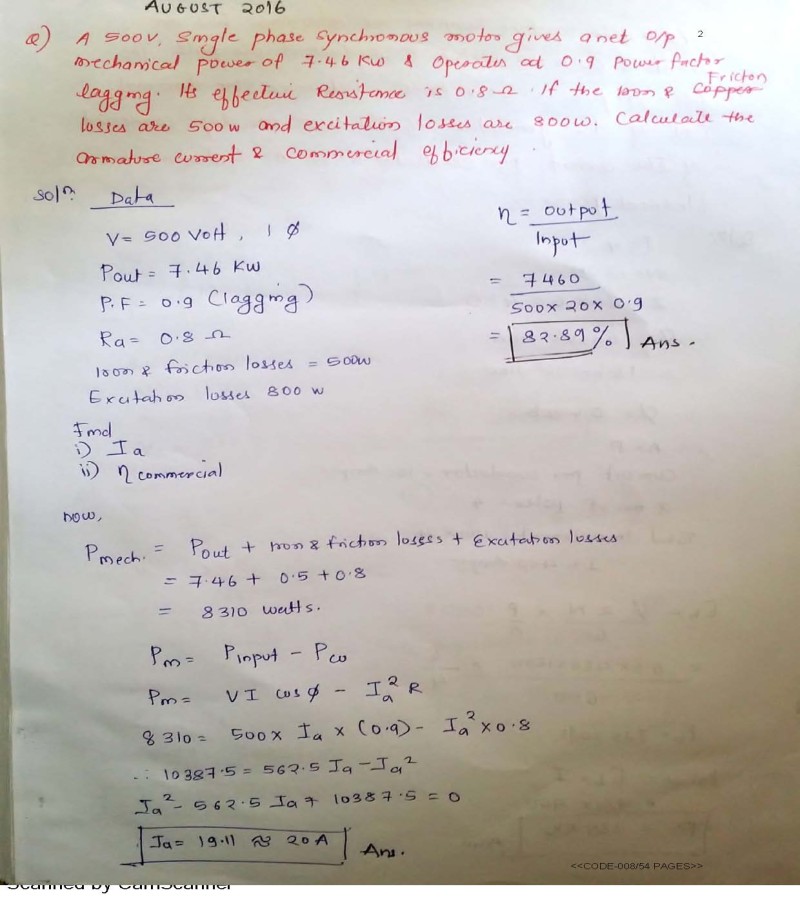 AUGUST 2016
2
Q) A 500V, single phase synchronous motor gives a net O/p
mechanical power of 7.46 KW & Operates at 0.9 power factor
lagging. Its effective Resistance is 0.8 Ω. If the iron & Copper Friction
losses are 500 w and excitation losses are 800w. Calculate the
armature current & commercial efficiency.
Solⁿ. Data
V = 500 Volt, 1 ϕ
Pout = 7.46 KW
P.F = 0.9 (lagging)
Ra = 0.8 Ω
iron & friction losses = 500w
Excitation losses 800 w
Find
i) Ia
ii) η commercial
η = output / Input
= 7460 / 500 x 20 x 0.9
= 82.89 % Ans.
now,
Pmech. = Pout + iron & friction losses + Excitation losses
= 7.46 + 0.5 + 0.8
= 8310 watts.
Pm = Pinput - Pcu
Pm = VI cos ϕ - Ia² R
8310 = 500 x Ia x (0.9) - Ia² x 0.8
∴ 10387.5 = 562.5 Ia - Ia²
Ia² - 562.5 Ia + 10387.5 = 0
Ia = 19.11 ≈ 20 A Ans.
<<CODE-008/54 PAGES>>
Scanned by CamScanner